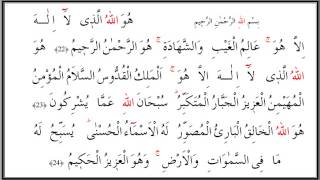 بِسْمِ اللهِ الرَّحْمٰنِ الرَّحِيْمِ هُوَ اللهُ الَّذِى لَآ اِلٰهَ
اِلَّا هُوَ ۚ عَالِمُ الْغَيْبِ وَالشَّهَادَةِ ۚ هُوَ الرَّحْمٰنُ الرَّحِيْمُ (22) هُوَ
اللهُ الَّذِى لَآ اِلٰهَ اِلَّا هُوَ ۚ اَلْمَلِكُ الْقُدُّوْسُ السَّلَامُ الْمُؤْمِنُ
الْمُهَيْمِنُ الْعَزِيْزُ الْجَبَّارُ الْمُتَكَبِّرُ ؕ سُبْحَانَ اللهِ عَمَّا يُشْرِكُوْنَ (23)
هُوَ اللهُ الْخَالِقُ الْبَارِئُ الْمُصَوِّرُ لَهُ الْاَسْمَآءُ الْحُسْنٰى ؕ يُسَبِّحُ لَهُ
مَا فِى السَّمٰوَاتِ وَالْاَرْضِ ۚ وَهُوَ الْعَزِيْزُ الْحَكِيْمُ (24)